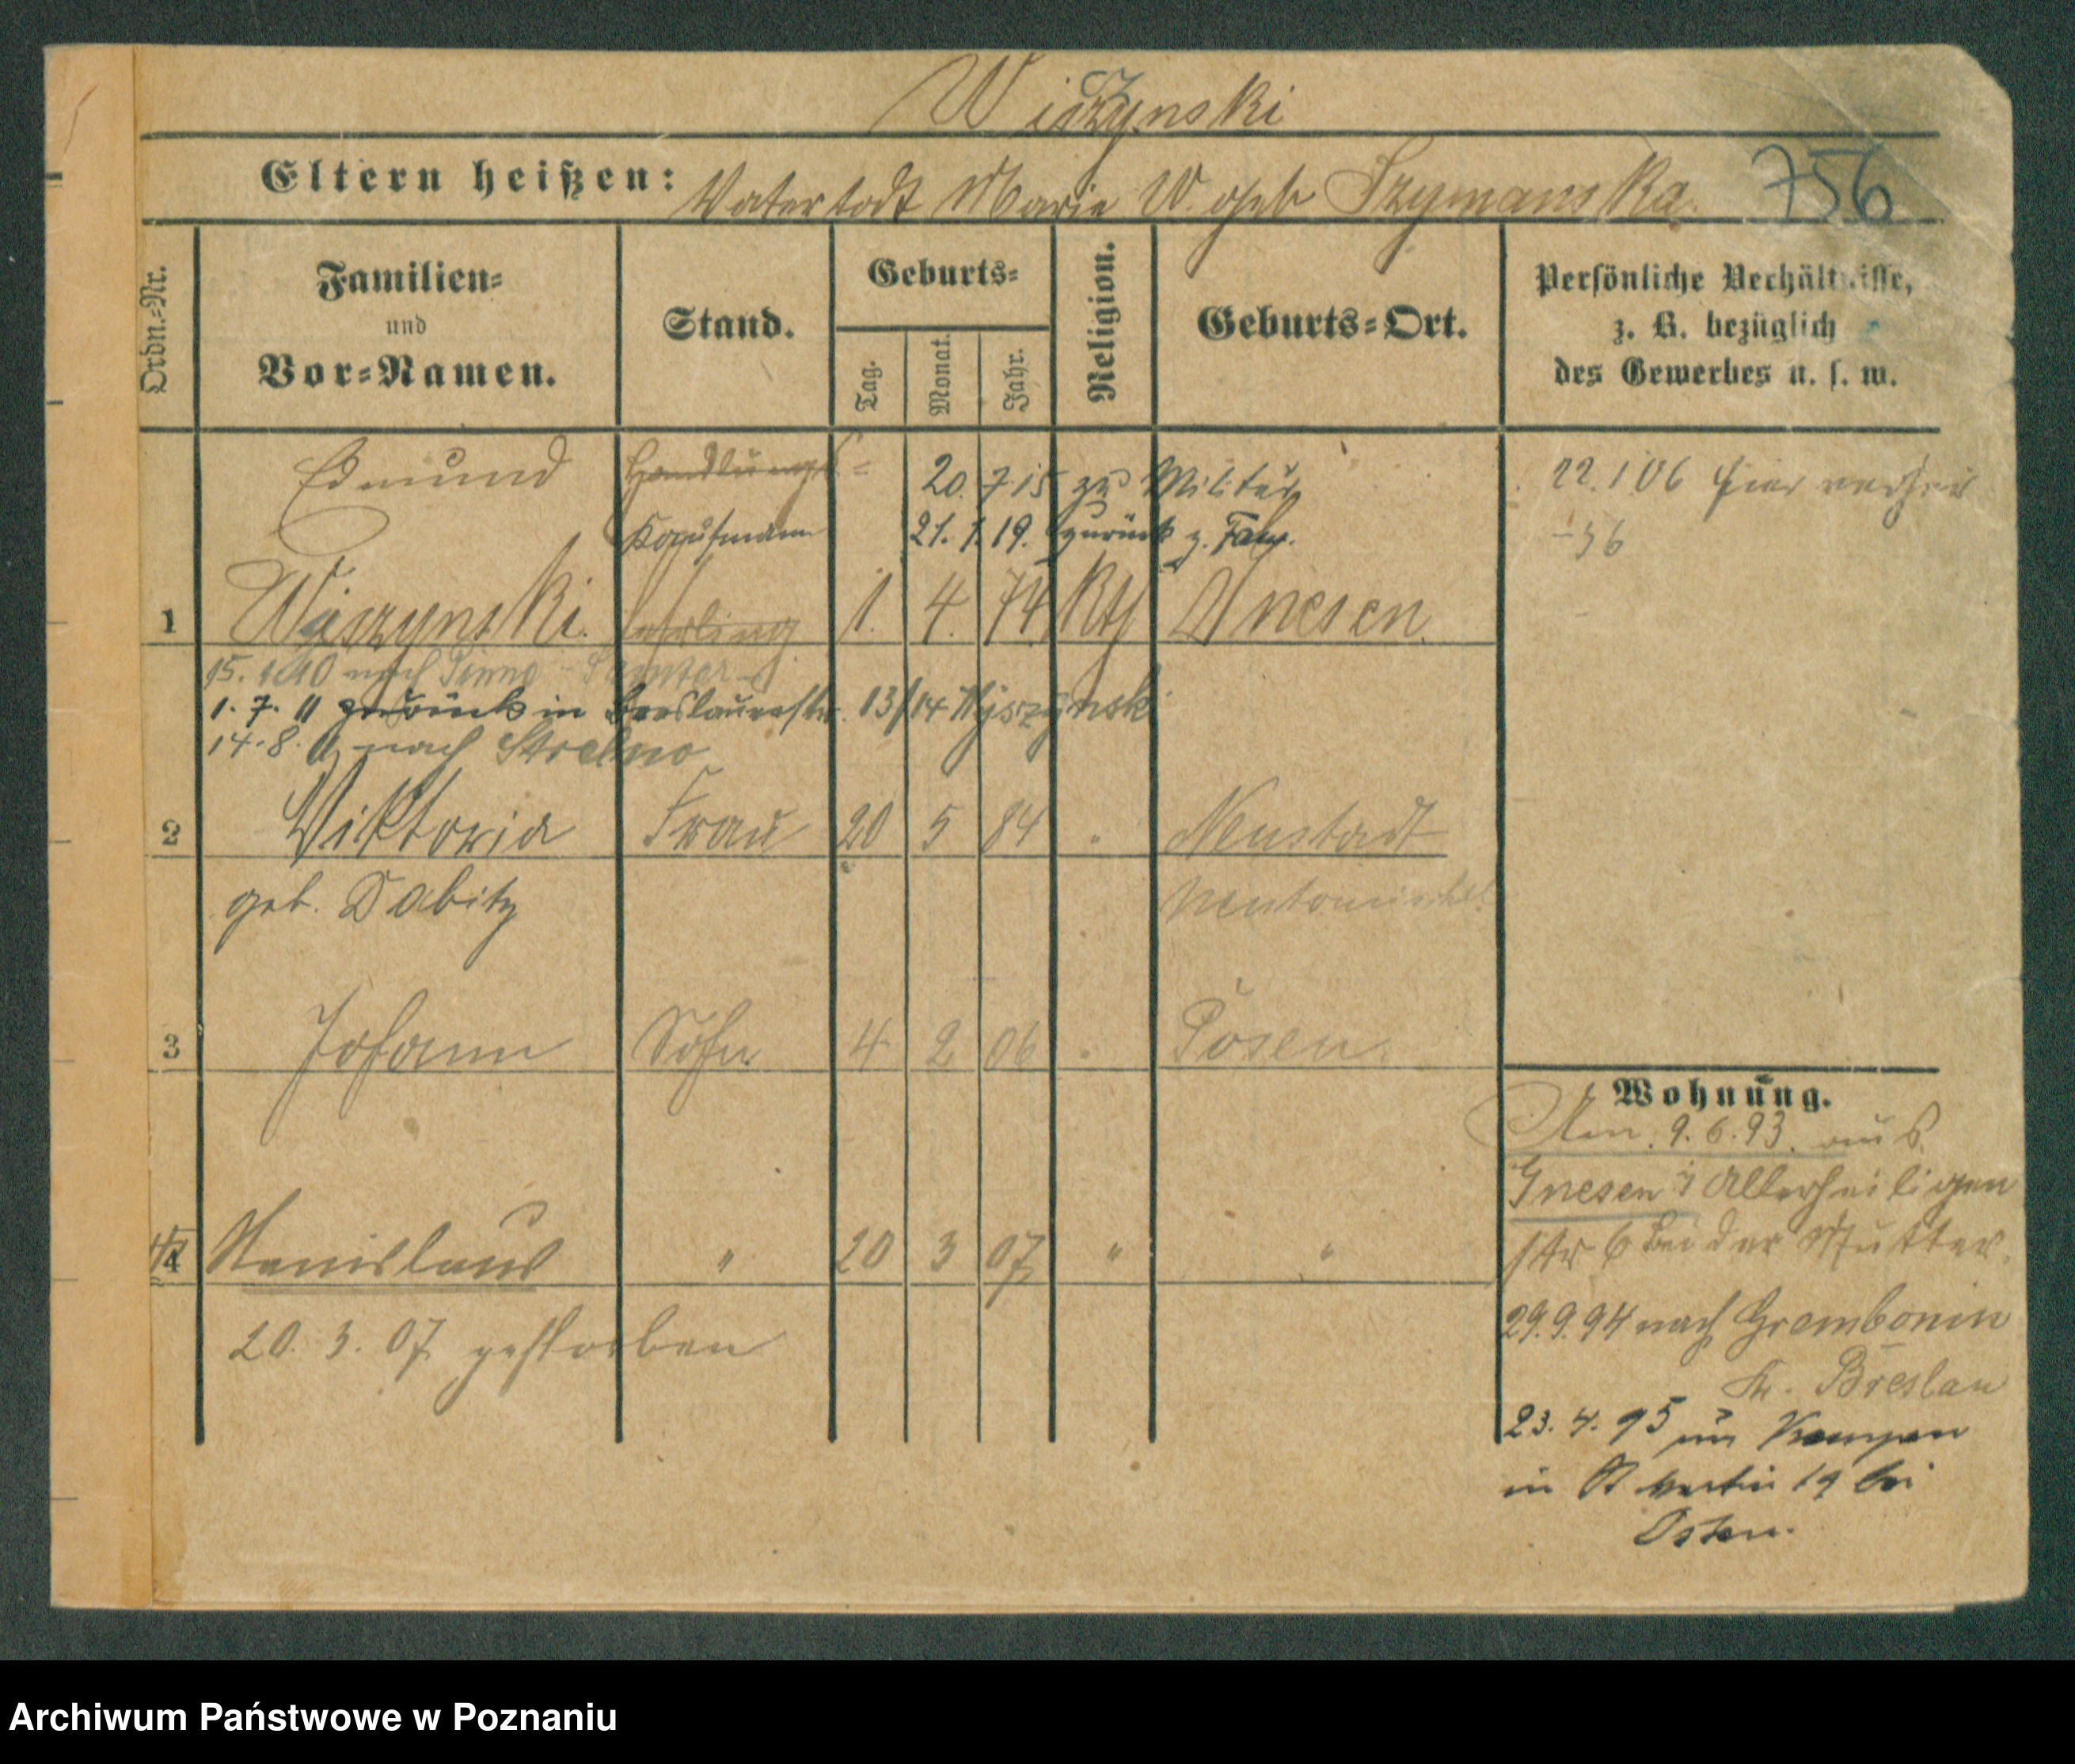 Wiszynski
Eltern heißen: Vater todt Marie W. geb Szymanska.
756
Ordn.-Nr.
Familien-
und
Vor-Namen.
Stand.
Geburts-
Tag.
Monat.
Jahr.
Religion.
Geburts-Ort.
Persönliche Verhältnisse,
z. B. bezüglich
des Gewerbes u. s. w.
Edmund Handlungs- 20. 7 15 zu Militär
22. 1 06 hier
-36
Kaufmann 21. 1. 19. zurück z. Fam.
1 Wyszynski. Lehrling 1. 4. 74 Kth Gnesen.
15. 1. 10 nach Pinne - Samter
1. 7. 11 zurück in Breslauerstr. 13/14 Wyszynski
14. 8. 11 nach Strelno
2 Wiktoria Frau 20 5 84 " Neustadt
geb. Dabitz Neutomischel
3 Johann Sohn 4 2 06 " Posen.
4 Stanislaus " 20 3 07 " "
20. 3. 07 gestorben
Wohnung.
Am. 9. 6. 93. aus
Gnesen i Allerheiligen
str 6 bei der Mutter.
29. 9. 94 nach Grembonin
Kr. Breslau
23. 4. 95 aus Kempen
in St Martin 19 bei
Osten.
Archiwum Państwowe w Poznaniu